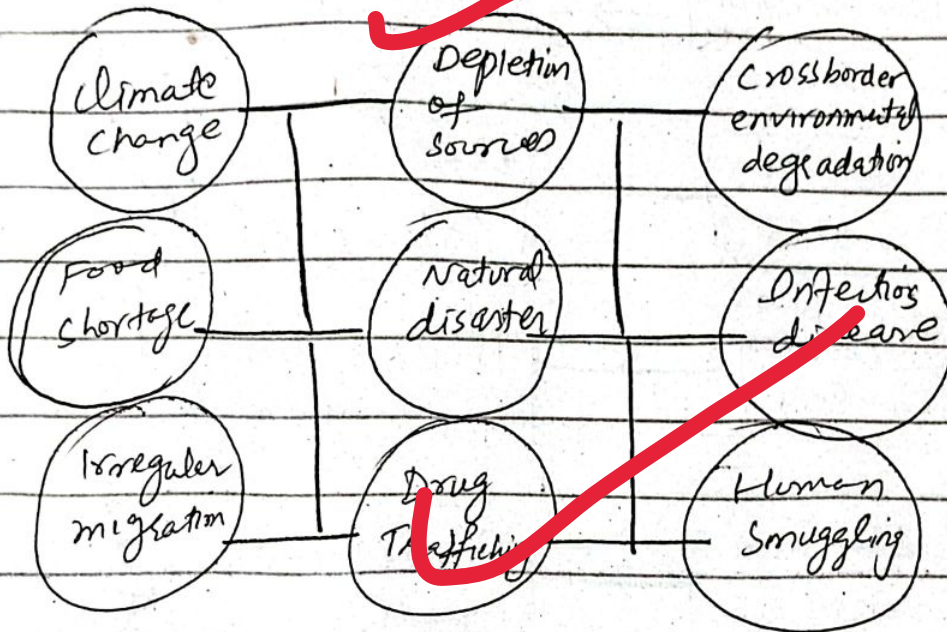 Climate
change
Depletion
of
sources
Crossborder
environmental
degradation
Food
shortage
Natural
disaster
Infectios
disease
Irregular
migration
Drug
Trafficking
Human
Smuggling